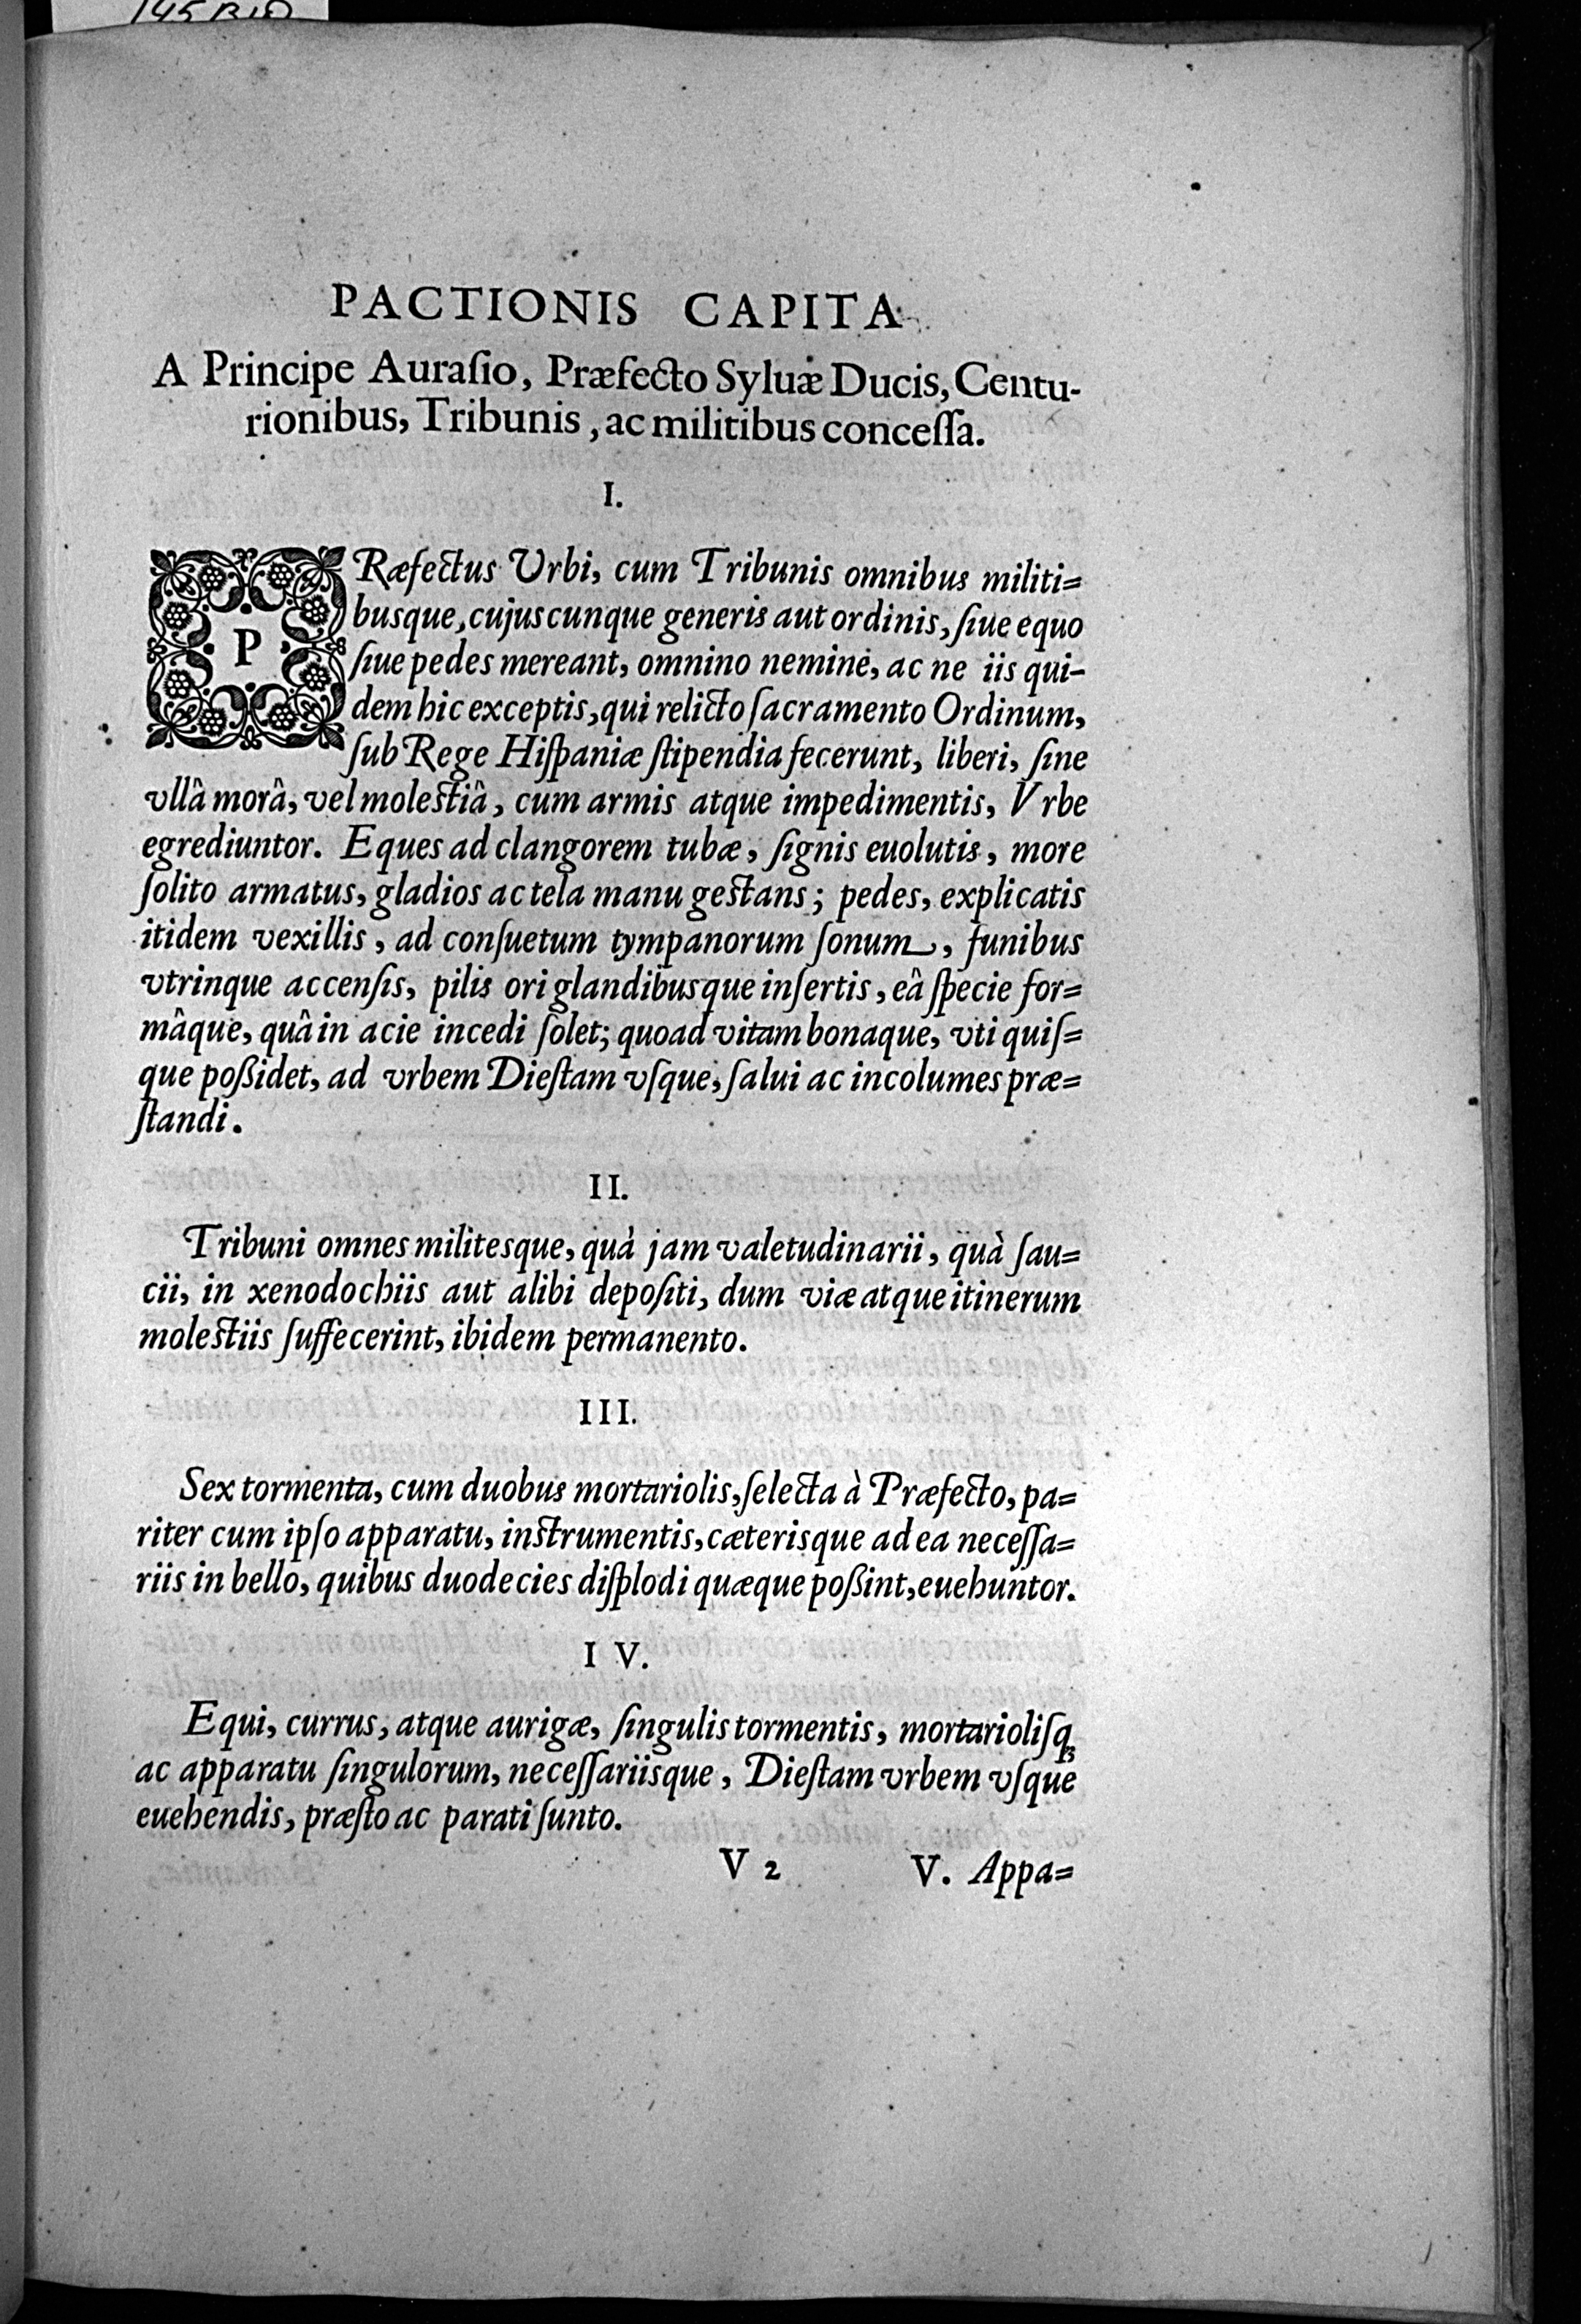 145 B10
PACTIONIS CAPITA
A Principe Auraſio, Præfecto Syluæ Ducis, Centu-
rionibus, Tribunis, ac militibus conceſſa.
I.
PRæfectus Urbi, cum Tribunis omnibus militi=
busque, cujuscunque generis aut ordinis, ſiue equo
ſiue pedes mereant, omnino nemine, ac ne iis qui-
dem hic exceptis, qui relicto ſacramento Ordinum,
ſub Rege Hiſpaniæ ſtipendia fecerunt, liberi, ſine
vllâ morâ, vel moleſtiâ, cum armis atque impedimentis, Vrbe
egrediuntor. Eques ad clangorem tubæ, ſignis euolutis, more
ſolito armatus, gladios ac tela manu geſtans; pedes, explicatis
itidem vexillis, ad conſuetum tympanorum ſonum, funibus
vtrinque accenſis, pilis ori glandibusque inſertis, eâ ſpecie for=
mâque, quâ in acie incedi ſolet; quoad vitam bonaque, vti quiſ=
que poßidet, ad vrbem Dieſtam vſque, ſalui ac incolumes præ=
ſtandi.
II.
Tribuni omnes militesque, quà jam valetudinarii, quà ſau=
cii, in xenodochiis aut alibi depoſiti, dum viæ atque itinerum
moleſtiis ſuffecerint, ibidem permanento.
III.
Sex tormenta, cum duobus mortariolis, ſelecta à Præfecto, pa=
riter cum ipſo apparatu, inſtrumentis, cæterisque ad ea neceſſa=
riis in bello, quibus duodecies diſplodi quæque poßint, euehuntor.
I V.
Equi, currus, atque aurigæ, ſingulis tormentis, mortarioliſq;
ac apparatu ſingulorum, neceſſariisque, Dieſtam vrbem vſque
euehendis, præſto ac parati ſunto.
V 2 V. Appa=